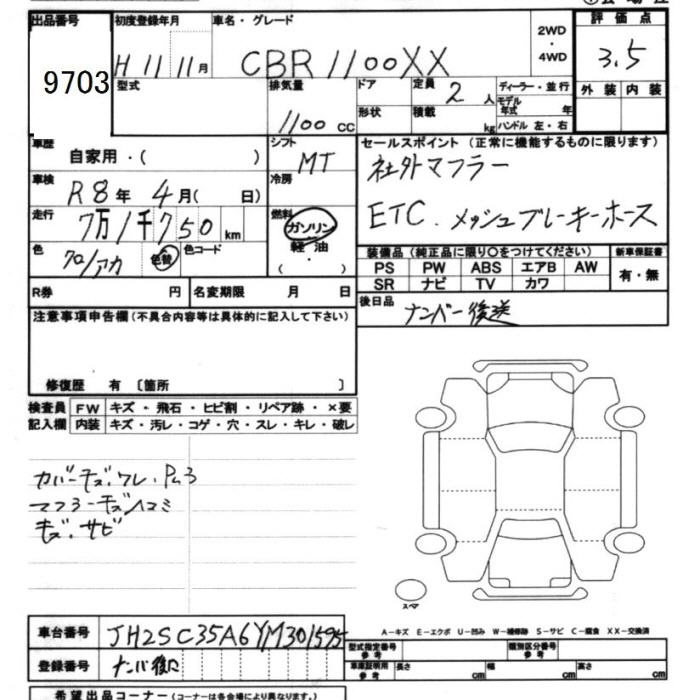 出品番号 9703
初度登録年月 H 11 11月
車名・グレード CBR 1100XX
2WD・4WD
評価点 3.5
外装 内装
型式
排気量 1100 cc
ドア
形状
定員 2 人
積載 kg
ディーラー・並行
モデル年式 年
ハンドル 左・右
車歴 自家用・( )
シフト MT
セールスポイント (正常に機能するものに限ります)
社外マフラー
ETC. メッシュブレーキーホース
車検 R8年 4月( 日)
冷房
走行 7万1千750 km
燃料 ガソリン 軽・油 ・( )
色 クロ/アカ 色替 色コード
装備品 (純正品に限り○をつけてください)
新車保証書 有・無
PS PW ABS エアB AW
SR ナビ TV カワ
R券 円 名変期限 月 日
後日品 ナンバー後送
注意事項申告欄 (不具合内容等は具体的に記入して下さい)
修復歴 有 〔箇所 〕
検査員記入欄
FW キズ・飛石・ヒビ割・リペア跡・×要
内装 キズ・汚レ・コゲ・穴・スレ・キレ・破レ
カバーキズ.ワレ.
マフラーキズヘコミ
キズ.サビ
スペア
A－キズ E－エクボ U－凹み W－補修跡 S－サビ C－腐食 XX－交換済
車台番号 JH2SC35A6YM301595
登録番号 ナンバ後日
型式指定番号 参考
類別区分番号 参考
車庫証明用 参考
長さ cm 幅 cm 高さ cm
希望出品コーナー (コーナーは各会場により異なります。)